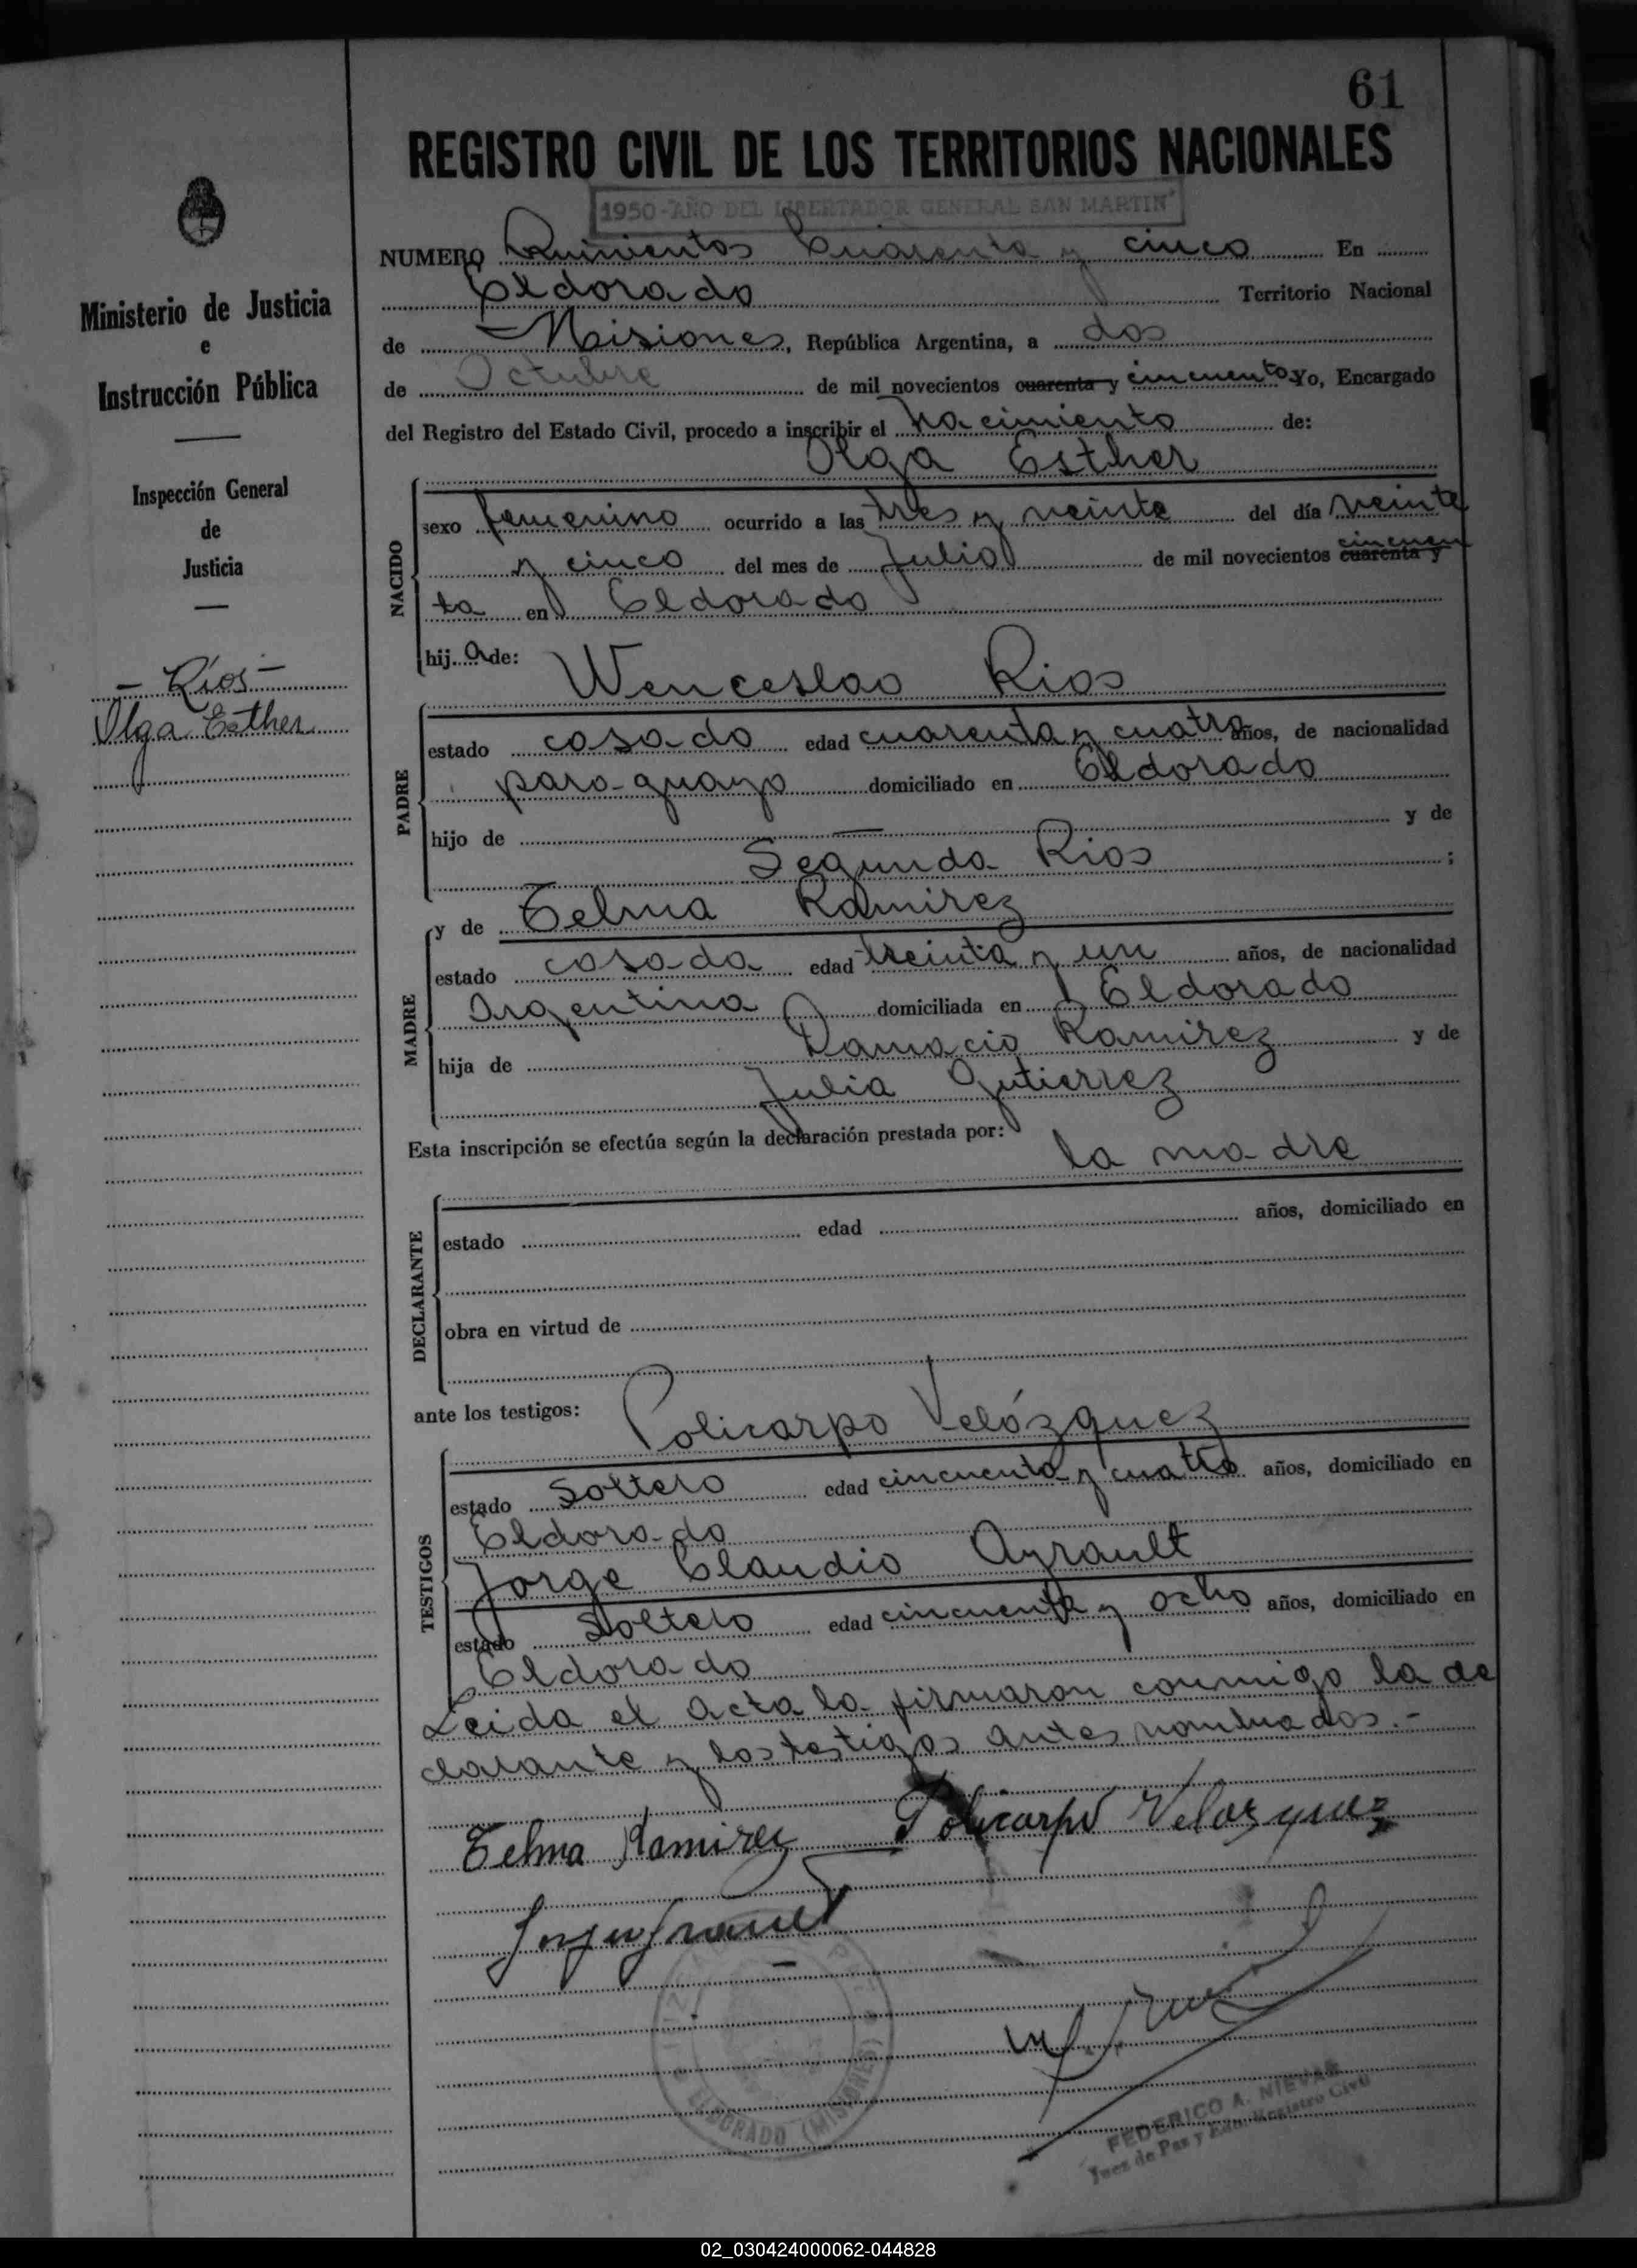 61
REGISTRO CIVIL DE LOS TERRITORIOS NACIONALES
1950-AÑO DEL LIBERTADOR GENERAL SAN MARTIN
NUMERO Quinientos Cuarenta y cinco En
Eldorado Territorio Nacional
de Misiones, República Argentina, a dos
de Octubre de mil novecientos cuarenta y cincuenta Yo, Encargado
del Registro del Estado Civil, procedo a inscribir el nacimiento de:
Olga Esther
NACIDO
sexo femenino ocurrido a las tres y veinte del día veinte
y cinco del mes de Julio de mil novecientos cuarenta y cincuen
ta en Eldorado
hij a de:
Wenceslao Rios
PADRE
estado casado edad cuarenta y cuatro años, de nacionalidad
paraguayo domiciliado en Eldorado
hijo de — y de
Segunda Rios ;
y de Telma Ramirez
MADRE
estado casada edad treinta y un años, de nacionalidad
Argentina domiciliada en Eldorado
hija de Damacio Ramirez y de
Julia Gutierrez
Esta inscripción se efectúa según la declaración prestada por:
la madre
DECLARANTE
estado edad años, domiciliado en
obra en virtud de
ante los testigos:
Policarpo Velózquez
TESTIGOS
estado Soltero edad cincuenta y cuatro años, domiciliado en
Eldorado
Jorge Claudio Ayrault
estado Soltero edad cincuenta y ocho años, domiciliado en
Eldorado
Leida el acta la firmaron conmigo la de
clarante y los testigos antes nombrados.-
Telma Ramirez Policarpo Velozquez
ELDORADO (MISIONES)
FEDERICO A. NIEVAS
Juez de Paz y Enc. Registro Civil
Ministerio de Justicia
e
Instrucción Pública
Inspección General
de
Justicia
- Ríos -
Olga Esther
02_030424000062-044828